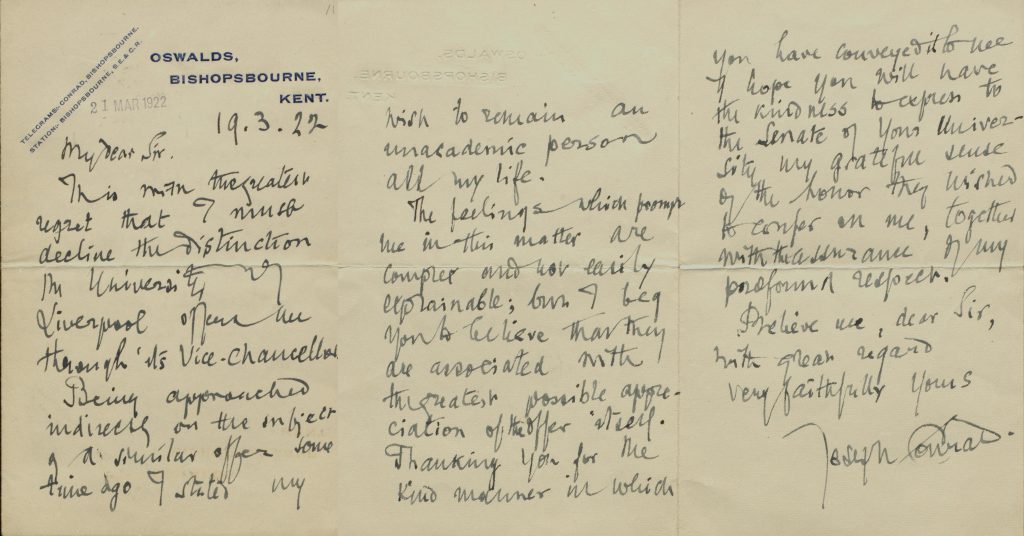 TELEGRAMS:- CONRAD, BISHOPSBOURNE.
STATION:- BISHOPSBOURNE, S.E. & C.R.
OSWALDS,
BISHOPSBOURNE,
KENT.
21 MAR 1922
19.3.22
My dear Sir.
This is with the greatest
regret that I must
decline the distinction
the University of
Liverpool offers me
through its Vice-Chancellor.
Being approached
indirectly on the subject
of a similar offer some
time ago I stated my
wish to remain an
unacademic person
all my life.
The feelings which prompt
me in this matter are
complex and not easily
explainable; but I beg
you to believe that they
are associated with
the greatest possible appre-
ciation of the offer itself.
Thanking You for the
kind manner in which
you have conveyed it to me
I hope you will have
the kindness to express to
the Senate of Your Univer-
sity my grateful sense
of the honor they wished
to confer on me, together
with the assurance of my
profound respect.
Believe me, dear Sir,
with great regard
very faithfully yours
Joseph Conrad.